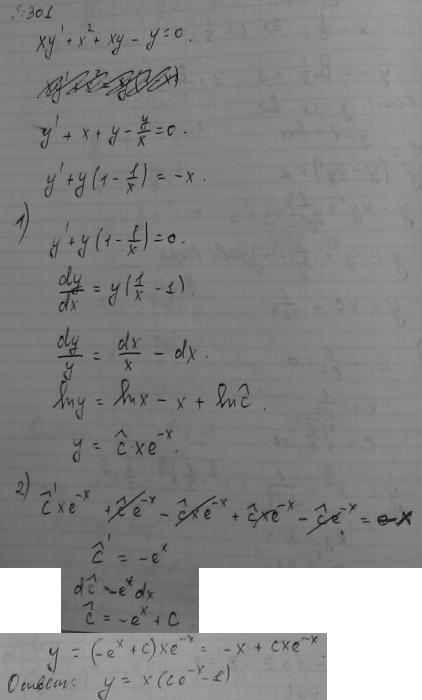 №301
xy' + x² + xy - y = 0.
y' + x + y - y/x = 0.
y' + y(1 - 1/x) = -x.
1)
y' + y(1 - 1/x) = 0.
dy/dx = y(1/x - 1).
dy/y = dx/x - dx.
ln y = ln x - x + ln ĉ.
y = ĉ·xe^{-x}.
2) ĉ'xe^{-x} + ĉe^{-x} - ĉxe^{-x} + ĉxe^{-x} - ĉe^{-x} = -x
ĉ' = -e^x
dĉ = -e^x dx
ĉ = -e^x + C
y = (-e^x + c)xe^{-x} = -x + cxe^{-x}.
Ответ: y = x(ce^{-x} - 1)